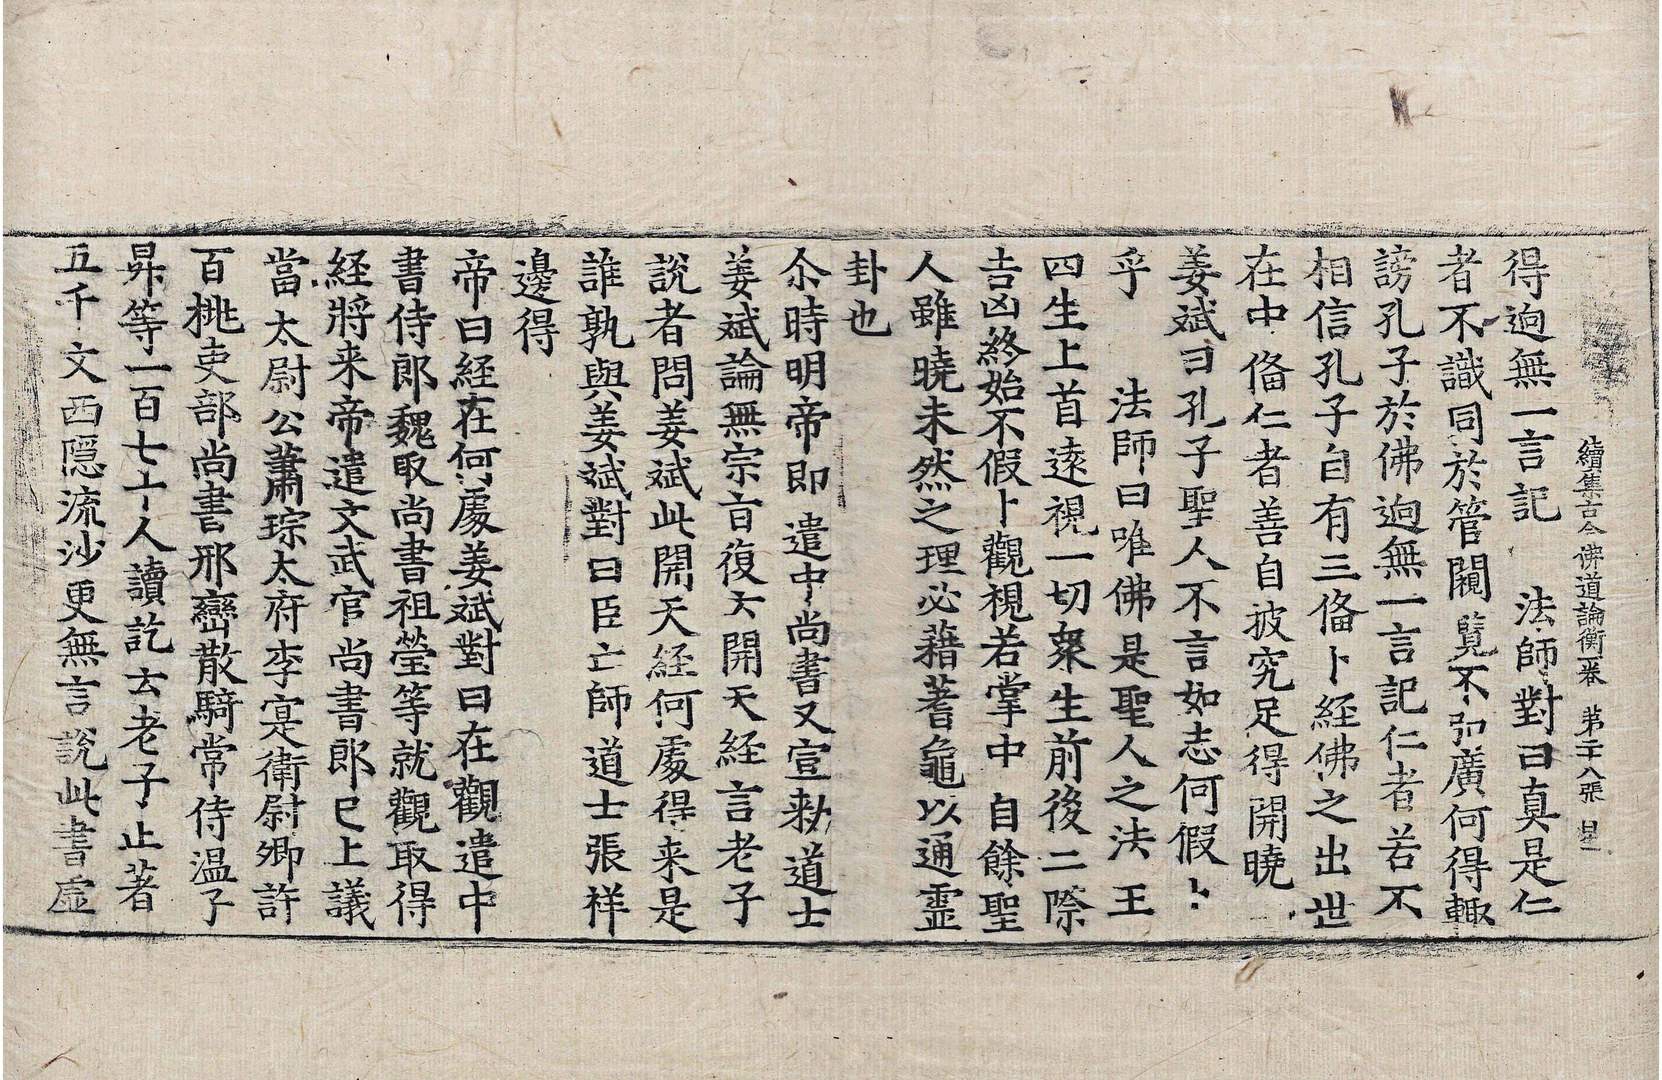 續集古今佛道論衡一卷 第二十八張 星
得逈無一言記 法師對曰真是仁
者不識同於管闚覧不弘廣何得輙
謗孔子於佛逈無一言記仁者若不
相信孔子自有三俻卜經佛之出世
在中俻仁者善自披究足得開曉
姜斌曰孔子聖人不言如志何假卜
乎 法師曰唯佛是聖人之法王
四生上首逺視一切衆生前後二際
吉凶終始不假卜觀視若掌中 自餘聖
人雖曉未然之理必藉蓍龜以通靈
卦也
尒時明帝即 遣中尚書又宣勑道士
姜斌論無宗旨復太開天経言老子
說者問姜斌此開天経何處得来是
誰孰與姜斌對曰臣亡師道士張祥
邊得
帝曰経在何處姜斌對曰在觀遣中
書侍郎魏取尚書祖瑩等就觀取得
経將来帝遣文武官尚書郎已上議
當太尉公蕭琮太府李寔衛尉卿許
百桃吏部尚書邢巒散騎常侍温子
昇等一百七十人讀訖云老子止著
五千文西隠流沙更無言說此書虛